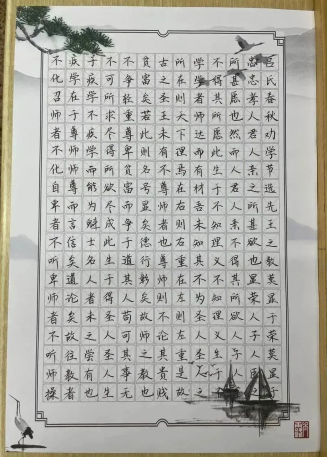 吕氏春秋劝学节选先王之教莫荣于孝莫显于
忠忠孝人君人亲之所甚欲也显荣人子人臣之
所甚愿也然而人君人亲不得其所欲人子人臣
不得其所愿此生于不知理义不知理义生于不
学学者师达而有材吾未知其不为圣人圣人之
所在则天下理焉在右则右重在左则左重是故
古之圣王未有不尊师者也尊师则不论其贵贱
贫富矣若此则名号显矣德行彰矣故师之教也
不争轻重尊卑贫富而争于道其人苟可其事无
不可所求尽得所欲尽成此生于得圣人圣人生
于疾学不疾学而能为魁士名人者未之尝有也
疾学在于尊师师尊则言信矣道论矣故往教者
不化召师者不化自卑者不听卑师者不听师操